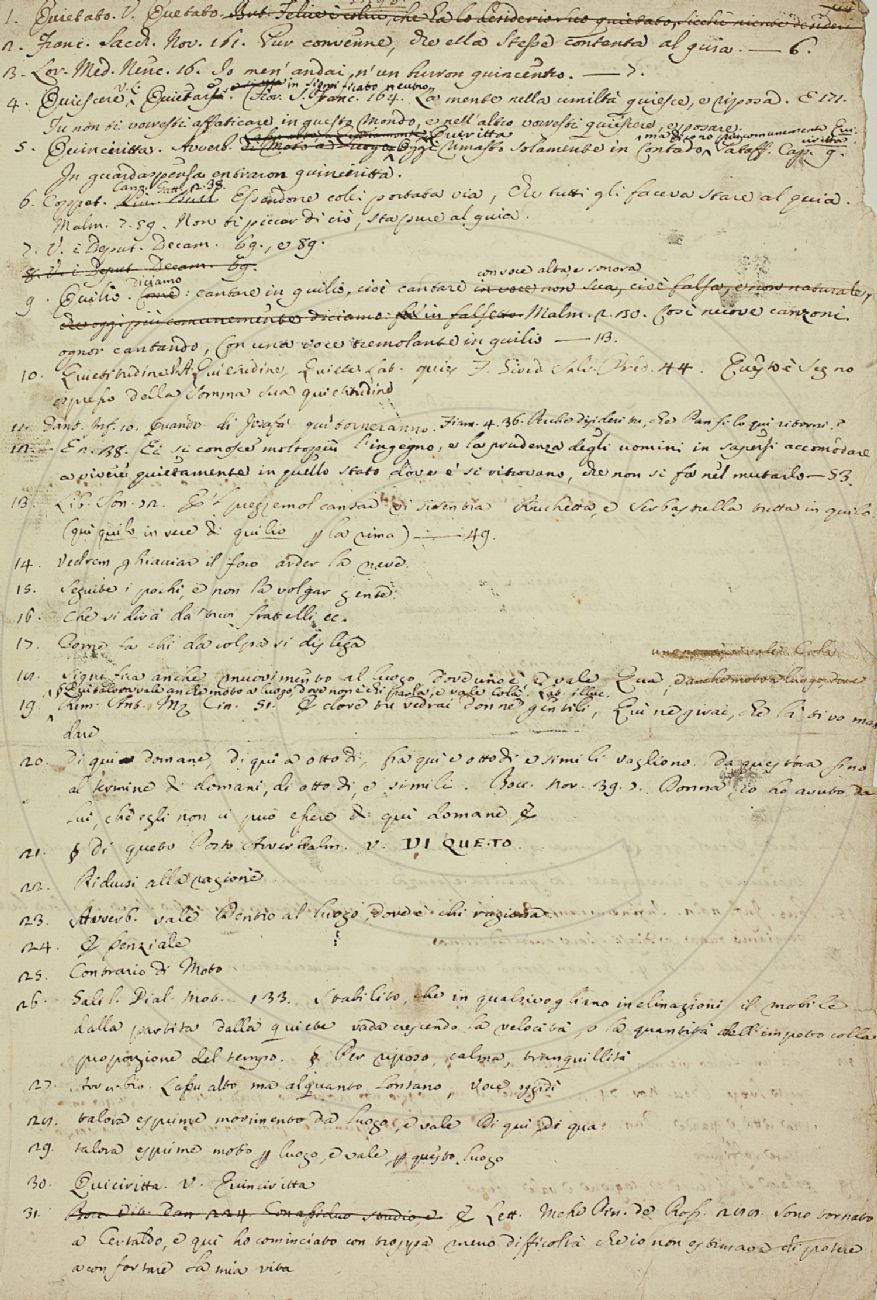 1. Quietato. V. Quetato. Aut. Felice è colui, che ha lo desiderio suo quietato, sicché niente desideri
2. Franc. Sacch. Nov. 161. Pur convenne, che ella stesse contenta al quia. — 6.
3. Lor. Med. Nenc. 16. Io men' andai, n'un burron quincentro. — 7.
in significato neutro
4. Quiescere V. e Quietarsi. Fior. S. Franc. 164. La mente nella umiltà quiesce, e riposa. E 171.
Tu non ti vorresti affaticare in questo mondo, e nell' altro vorresti quiescere, e posare.
Quiritta
5. Quinciritta. Avverb. di Moto a luogo Oggi rimasto solamente in Contado, Pataff. Cap. 9.
In guardaspensa entraron quinciritta.
6. Coppet. Canz. 238. Essendone colei portata via, Che tutti gli faceva stare al quia.
Malm. 7. 59. Non ti piccar di ciò, sta pure al quia.
7. V. i Deput. Decam. 69., e 89.
8. V. i Deput. Decam. 69.
diciamo con voce alta, e sonora
9. Quilio. Come: cantare in quilio, cioè cantare in voce non sua, cioè falsa, e non naturale,
che oggi più comunemente diciamo in falsetto Malm. 2. 50. Così nuove canzoni
ognor cantando, Con una voce tremolante in quilio — 13.
10. Quietitudine Quietudine, Quiete Lat. quies 44. Questo è segno
espresso della somma sua quietitudine
11. Dant. Inf. 10. Quando di Josafà qui torneranno. 4. 36. che Pan si lo qui ritorni?
12. E 2. 38. Ei si conosce molto più l'ingegno, e la prudenza degli uomini in sapersi accomodare
a vivere quietamente in quello stato dove e' si ritrovano, che non si fa nel mutarlo — 53.
13. Lib. Son. 72. cantar di Ruchetta, e tutta in quilo
(qui quilo in vece di quilio per la rima) — 49.
14. Vedrem ghiacciar il foco arder la neve.
15. Seguite i pochi, e non la volgar gente.
16. Che si dirà da' tuoi fratelli ec.
17. Come fa chi da colpa si dislega
18. Significa anche movimento al luogo, dov'uno è, e vale Qua, e anche moto a luogo, dove
Qui talora vale anche moto a luogo, dove non è chi parla, e vale Colà. Lat. illuc.
19. Rim. Ant. M. Cin. 51. E dove tu vedrai donne gentili, Qui ne girai, che là ti vo man
dare
20. Di qui a domane, di qui a otto dì, fra qui e otto dì e simili vagliono. Da quest'ora fino
al termine di domani, di otto dì, e simili. Bocc. Nov. 39. 7. Donna, io ho avuto da
lui, che egli non ci può essere di qui domane
21. Di queto Posto Avverbialm. V. DI QUETO
22. Ridursi alla ragione
23. Avverb. vale Dentro al luogo, dov'è chi ragiona
24. E Senziale
25. Contrario di Moto
26. Galil. Dial. Mot. 133. Stabilito, che in qualsivogliano inclinazioni il mobile
dalla partita dalla quiete vada crescendo la velocità, o la quantità dell' impeto colla
proporzione del tempo. Per riposo, calma, tranquillità
27. Avverbio. Lassù alto ma alquanto lontano, Voce
28. talora esprime movimento da luogo, e vale Di qui, di qua
29. talora esprime moto per luogo, e vale per questo luogo
30. Quiciritta. V. Quinciritta
31. 224. Con assiduo studio, e E Lett. Mess. Pin. de' Ross. 281. Sono tornato
a Certaldo, e qui ho cominciato con troppa meno difficoltà che io non estimava di potere
a confortare la mia vita